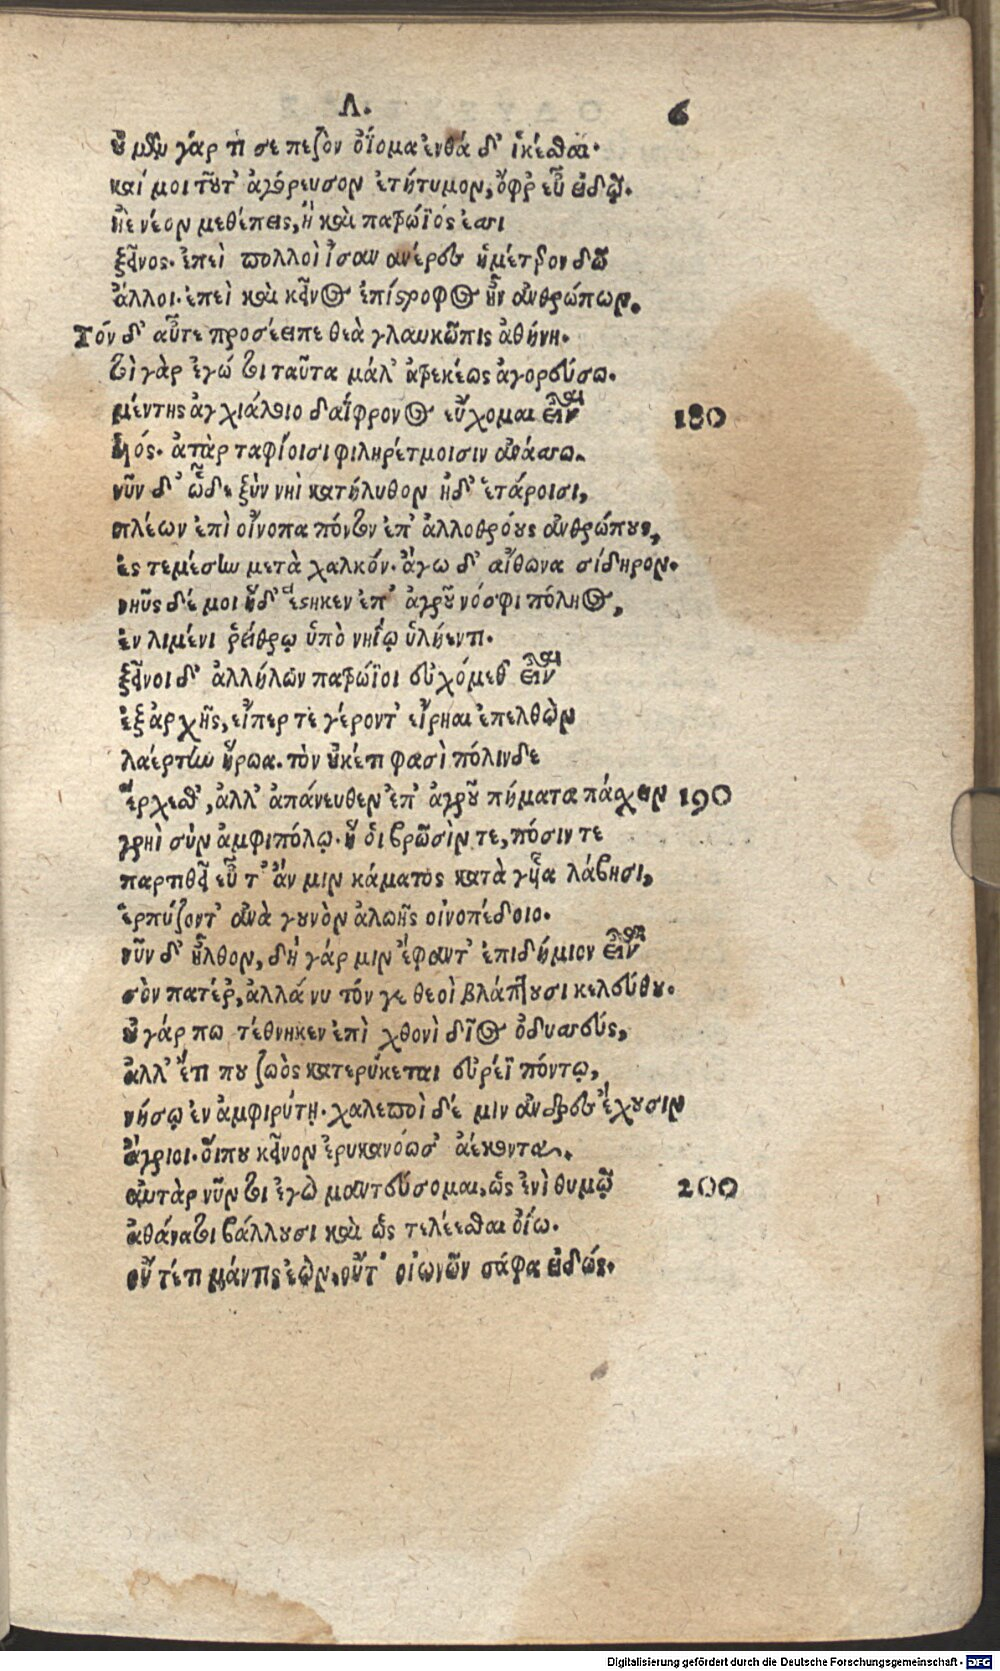 Λ. 6
οὐ μὲν γάρ τί σε πεζὸν ὀΐομαι ἐνθάδ' ἱκέσθαι.
καί μοι τοῦτ' ἀγόρευσον ἐτήτυμον, ὄφρ' εὖ εἰδῶ.
ἠὲ νέον μεθέπεις, ἢ καὶ πατρώϊός ἐσσι
ξεῖνος. ἐπεὶ πολλοὶ ἴσαν ἀνέρες ἡμέτερον δῶ
ἄλλοι. ἐπεὶ καὶ κεῖνος ἐπίστροφος ἦν ἀνθρώπων.
Τόν δ' αὖτε προσέειπε θεὰ γλαυκῶπις ἀθήνη.
τοὶ γὰρ ἐγώ τοι ταῦτα μάλ' ἀτρεκέως ἀγορεύσω.
μέντης ἀγχιάλοιο δαΐφρονος εὔχομαι εἶναι 180
υἱός. ἀτὰρ ταφίοισι φιληρέτμοισιν ἀνάσσω.
νῦν δ' ὧδε ξὺν νηῒ κατήλυθον ἠδ' ἑτάροισι,
πλέων ἐπὶ οἴνοπα πόντον ἐπ' ἀλλοθρόους ἀνθρώπους,
ἐς τεμέσην μετὰ χαλκόν. ἄγω δ' αἴθωνα σίδηρον.
νηῦς δέ μοι ἥδ' ἕστηκεν ἐπ' ἀγροῦ νόσφι πόληος,
ἐν λιμένι ῥείθρῳ ὑπὸ νηΐῳ ὑλήεντι.
ξεῖνοι δ' ἀλλήλων πατρώϊοι εὐχόμεθ' εἶναι
ἐξ ἀρχῆς, εἴπερ τε γέροντ' εἴρηαι ἐπελθὼν
λαέρτην ἥρωα. τὸν οὐκέτι φασὶ πόλινδε
ἔρχεσθ', ἀλλ' ἀπάνευθεν ἐπ' ἀγροῦ πήματα πάσχειν 190
γρηῒ σὺν ἀμφιπόλῳ. ἥ οἱ βρῶσίν τε, πόσιν τε
παρτιθεῖ εὖ τ' ἄν μιν κάματος κατὰ γυῖα λάβησι,
ἑρπύζοντ' ἀνὰ γουνὸν ἀλωῆς οἰνοπέδοιο.
νῦν δ' ἦλθον, δὴ γάρ μιν ἔφαντ' ἐπιδήμιον εἶναι
σὸν πατέρ', ἀλλά νυ τόν γε θεοὶ βλάπτουσι κελεύθου.
οὐ γάρ πω τέθνηκεν ἐπὶ χθονὶ δῖος ὀδυσσεύς,
ἀλλ' ἔτι που ζωὸς κατερύκεται εὐρέϊ πόντῳ,
νήσῳ ἐν ἀμφιρύτῃ. χαλεποὶ δέ μιν ἄνδρες ἔχουσιν
ἄγριοι. οἵ που κεῖνον ἐρυκανόωσ' ἀέκοντα.
αὐτὰρ νῦν τοι ἐγὼ μαντεύσομαι, ὡς ἐνὶ θυμῷ 200
ἀθάνατοι βάλλουσι καὶ ὡς τελέεσθαι ὀΐω.
οὔ τέ τι μάντις ἐὼν, οὔτ' οἰωνῶν σάφα εἰδώς.
Digitalisierung gefördert durch die Deutsche Forschungsgemeinschaft - DFG